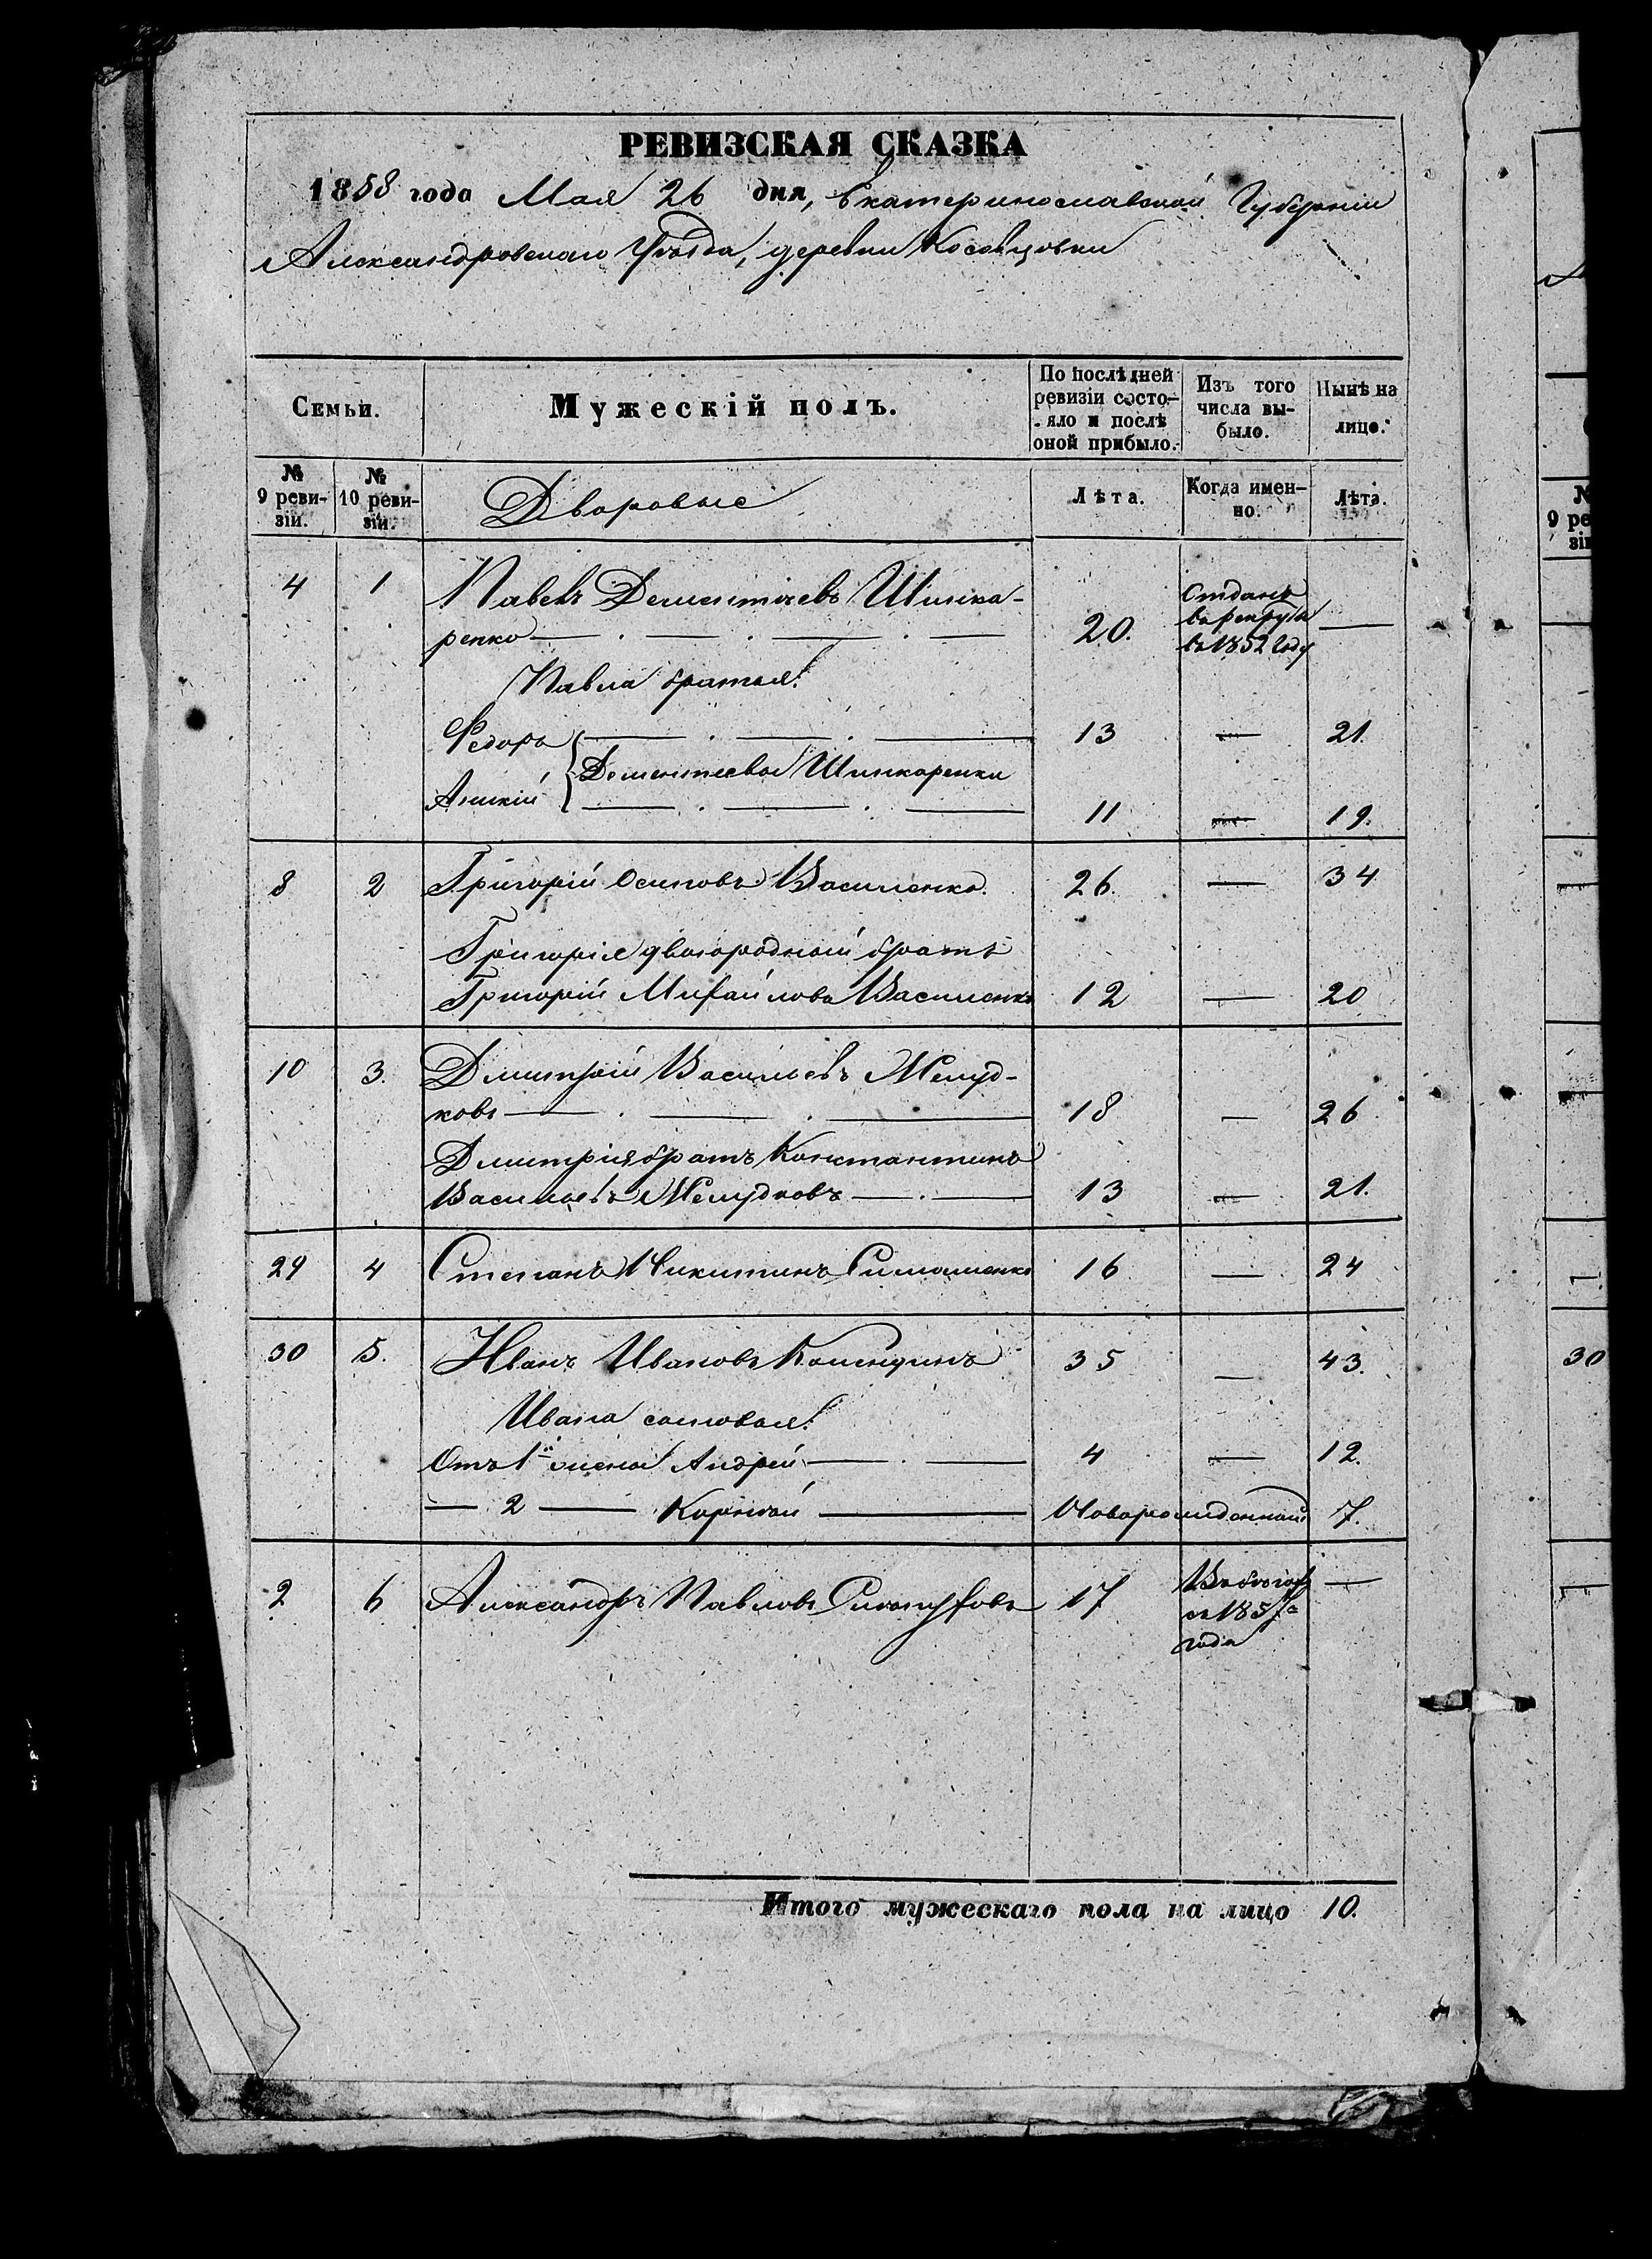 РЕВИЗСКАЯ СКАЗКА
1858 года Мая 26 дня, Екатеринославской Губерніи
Александровскаго Уѣзда, деревни Косовцовки
Семьи.
Мужескій полъ.
По послѣдней ревизіи состо-
яло и послѣ
оной прибыло.
Изъ того
числа вы-
было.
Нынѣ на
лицо.
№
9 реви-
зіи.
№
10 реви-
зіи.
Дворовые
Лѣта.
Когда имен-
но.
Лѣта.
4 1 Павелъ Дементьевъ Шинка-
ренко — . — . — . — 20. Отданъ въ рекруты въ 1852 году —
Павла братья:
Федоръ — . — . — 13 — 21.
Дементьевы Шинкаренки
Аникій — . — . — 11 — 19.
8 2 Григорій Осиповъ Василенко. 26. — 34
Григорія двоюродный братъ
Григорій Михайловъ Василенко 12 — 20
10 3. Дмитрій Васильевъ Желуд-
ковъ — . — . — 18 — 26.
Дмитрія братъ Константинъ
Васильевъ Желудковъ — . — 13 — 21.
29 4 Степанъ Никитинъ Симоненко 16 — 24
30 5. Иванъ Ивановъ 35 — 43.
Ивана сыновья:
Отъ 1й жены Андрей — . — 4 — 12.
— 2 — Корней — Новорожденный 7.
2 6 Александръ Павловъ 17 Въ бѣгахъ съ 1857го года —
Итого мужескаго пола на лицо 10.
№
9 ре
зі
30